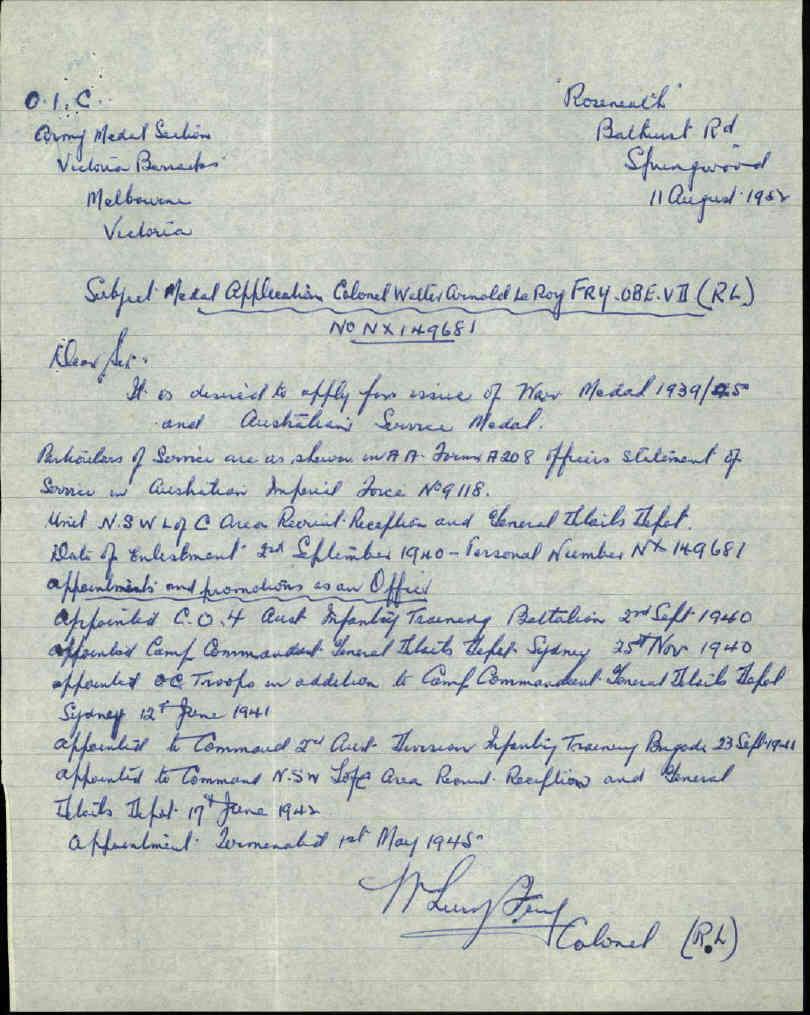 O.I.C.
Army Medal Section
Victoria Barracks
Melbourne
Victoria
"Roseneath"
Bathurst Rd
Springwood
11 August 1952
Subject Medal Application Colonel Walter Arnold Le Roy FRY. OBE. VD (RL)
No NX149681
Dear Sir.
It is desired to apply for issue of War Medal 1939/45
and Australian Service Medal.
Particulars of Service are as shown in A.A. Form A208 Officers Statement of
Service in Australian Imperial Force No 9118.
Unit N.S.W L of C Area Recruit Reception and General Details Depot.
Date of Enlistment 2nd September 1940 - Personal Number NX 149681
Appointments and promotions as an Officer
Appointed C.O. 4 Aust Infantry Training Battalion 2nd Sept 1940
Appointed Camp Commandant General Details Depot Sydney 25th Nov 1940
Appointed OC Troops in addition to Camp Commandant General Details Depot
Sydney 12th June 1941
Appointed to Command 2nd Aust Division Infantry Training Brigade 23 Sept 1941
Appointed to Command N.S.W L of C Area Recruit Reception and General
Details Depot 17th June 1942
Appointment Terminated 1st May 1945
W Leroy Fry
Colonel (R.L)